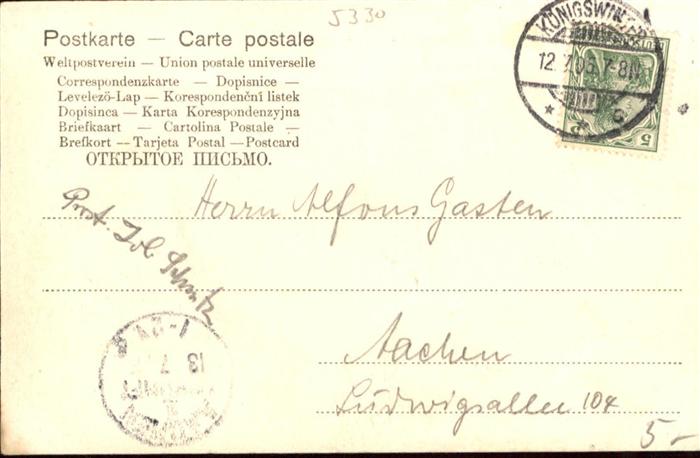 5330
Postkarte — Carte postale
Weltpostverein — Union postale universelle
Correspondenzkarte — Dopisnice —
Levelező-Lap — Korespondenční listek
Dopisinca — Karta Korespondenzyjna
Briefkaart — Cartolina Postale —
Brefkort — Tarjeta Postal — Postcard
ОТКРЫТОЕ ПИСЬМО.
12.7.06.7-8N
* c
5 5
Herrn Alfons Gasten
Aachen
Ludwigsallee 104
5-
13 7